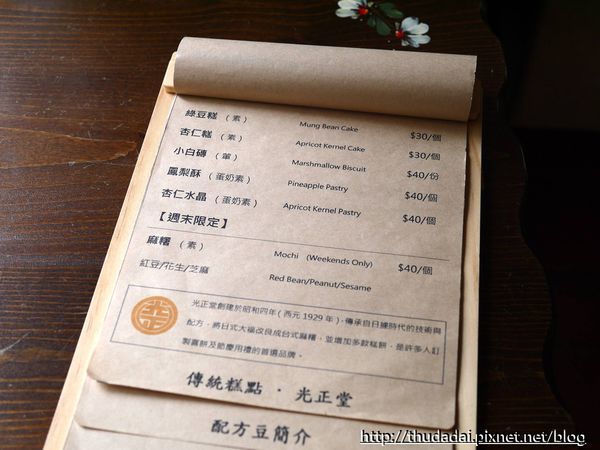 綠豆糕 (素) Mung Bean Cake $30/個
杏仁糕 (素) Apricot Kernel Cake $30/個
小白磚 (葷) Marshmallow Biscuit $40/份
鳳梨酥 (蛋奶素) Pineapple Pastry $40/個
杏仁水晶 (蛋奶素) Apricot Kernel Pastry $40/個
【週末限定】
麻糬 (素) Mochi (Weekends Only) $40/個
紅豆/花生/芝麻 Red Bean/Peanut/Sesame
光正堂創建於昭和四年(西元1929年),傳承自日據時代的技術與
配方,將日式大福改良成台式麻糬,並增加多款糕餅,是許多人訂
製喜餅及節慶用禮的首選品牌。
傳統糕點 · 光正堂
配方豆簡介
http://thudadai.pixnet.net/blog